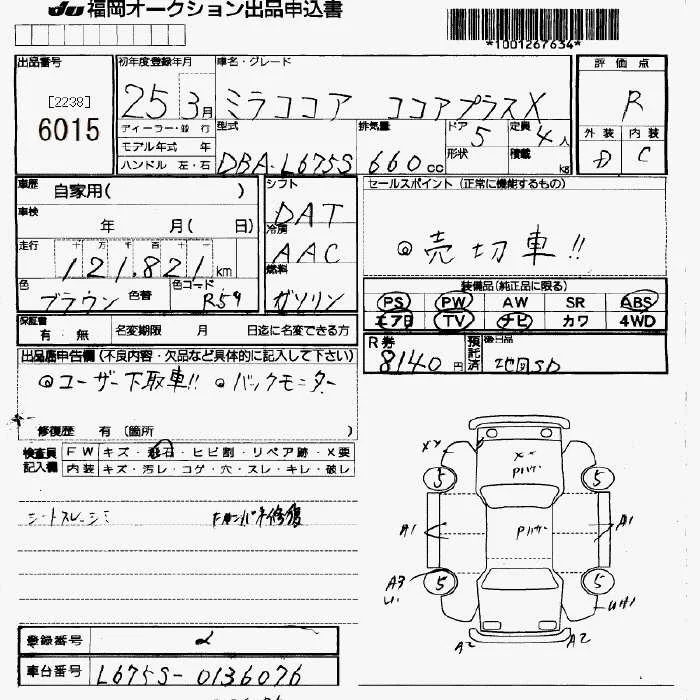 JU 福岡オークション出品申込書
*1001267634*
出品番号
[2238]
6015
初年度登録年月
25 3月
車名・グレード
ミラココア ココアプラスX
評価点
R
外装 内装
D C
ディーラー・並行
モデル年式 年
ハンドル 左・右
型式
DBA-L675S
排気量
660cc
ドア 5
形状
定員 4人
積載 kg
車歴 自家用( )
車検
年 月( 日)
走行 十万千百十
121,821km
色
ブラウン
色替
色コード
R59
シフト
DAT
冷房
AAC
燃料
ガソリン
セールスポイント (正常に機能するもの)
◎売切車!!
装備品(純正品に限る)
PS PW AW SR ABS
エアB TV ナビ カワ 4WD
保証書
有・無
名変期限 月 日迄に名変できる方
R券
8140円
預託済
後日品
地図SD
出品店申告欄(不良内容・欠品など具体的に記入して下さい)
◎ユーザー下取車!! ◎バックモニター
修復歴 有(箇所 )
検査員記入欄
FW キズ・飛石・ヒビ割・リペア跡・X要
内装 キズ・汚レ・コゲ・穴・スレ・キレ・破レ
シートスレ・シミ
修復
5
5
5
5
A1
A1
A3
A2
A2
登録番号
車台番号 L675S-0136076